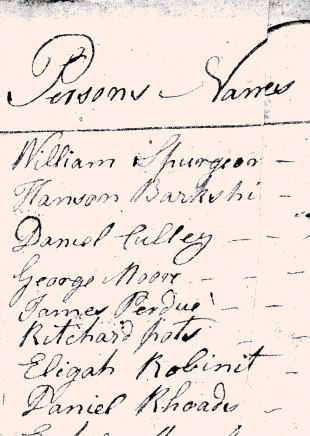 Persons Names
William Spurgeon -
Hanson Barkshi -
Daniel Culley - -
George Moore - -
James Perdue - -
Ritchard pots - -
Eligah Robinit -
Daniel Rhoads -